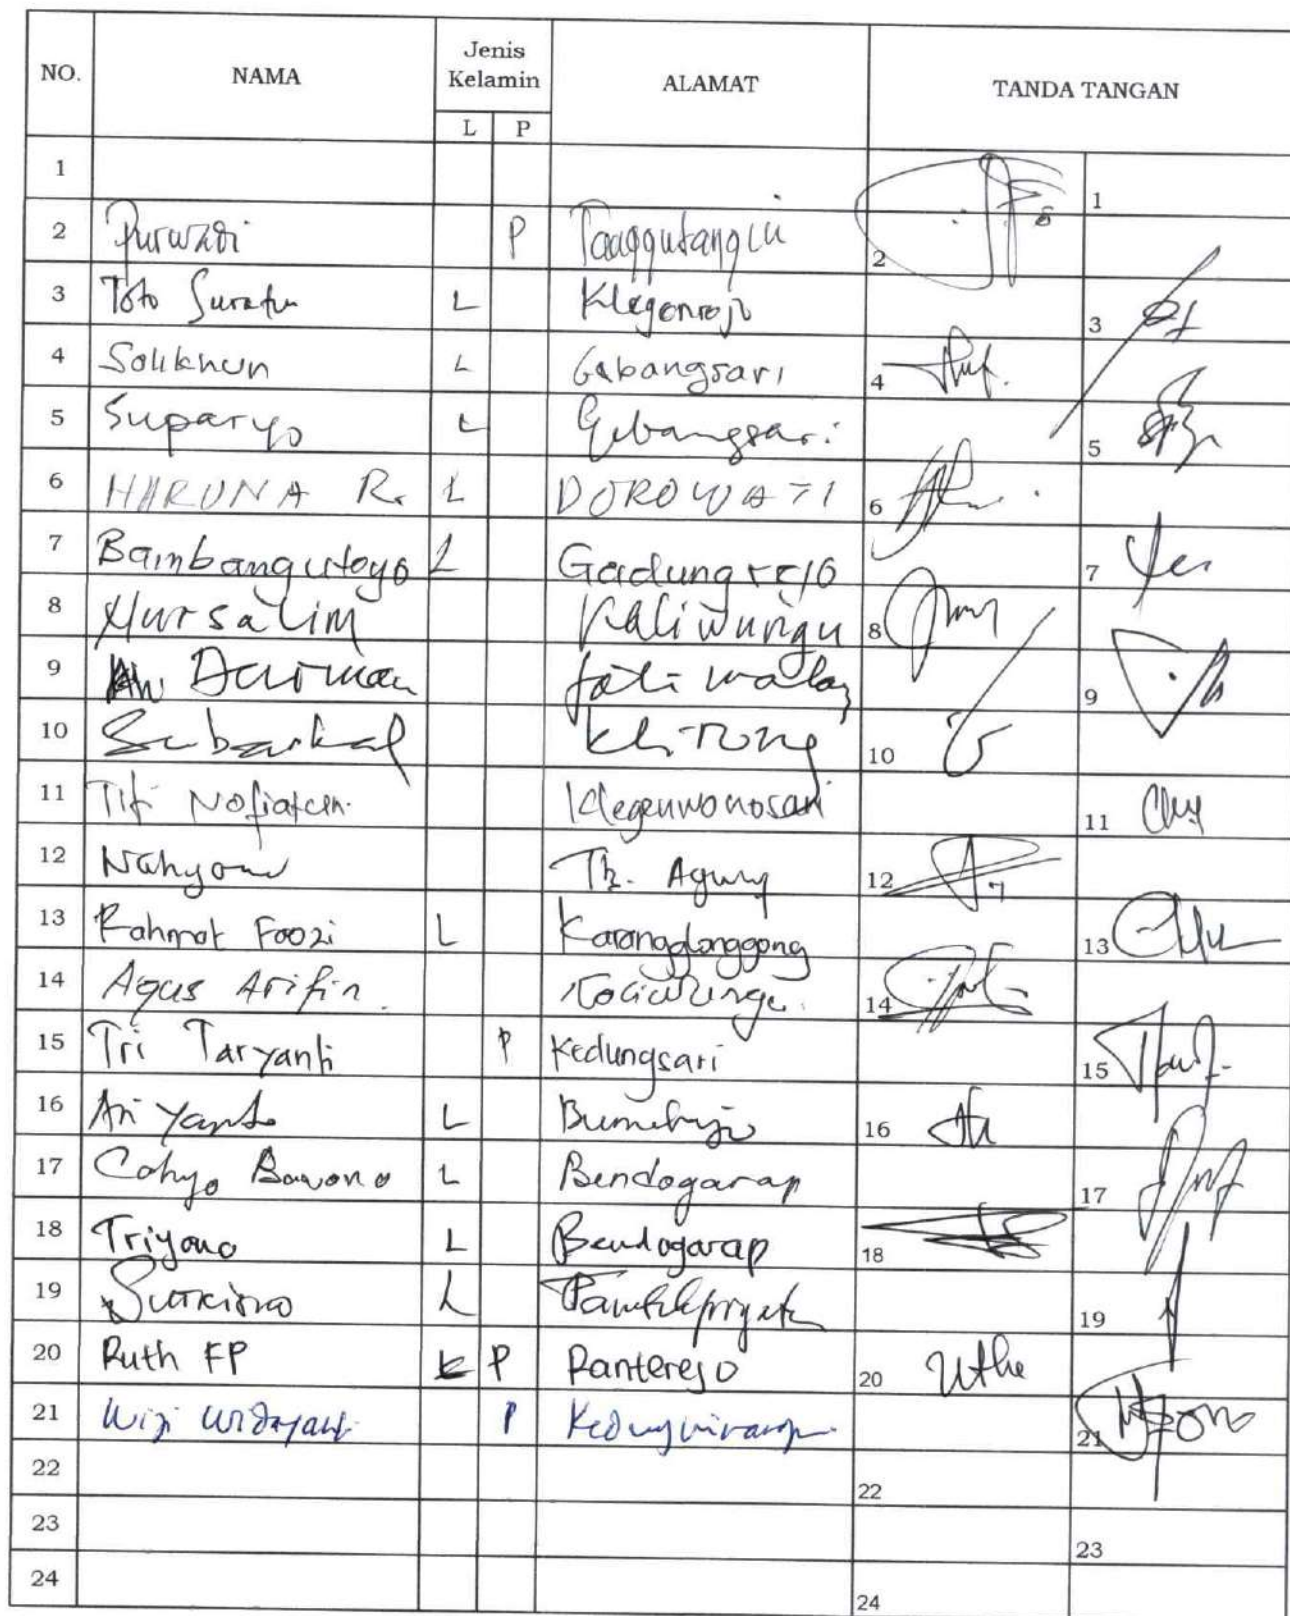 NO. NAMA Jenis Kelamin ALAMAT TANDA TANGAN
L P
1 1
2 Purwadi P Tanggulangin 2
3 Toto L Klegenrejo 3
4 Solikhun L Gebangsari 4
5 Suparyo L Gebangsari 5
6 HARUNA R. L DOROWATI 6
7 Bambang utoyo L Gadungrejo 7
8 Nursalim Kaliwungu 8
9 Darman Jatimalang 9
10 Klirong 10
11 Klegenwonosari 11
12 Nahyono Tk. Agung 12
13 Rahmat Foozi L Karangglonggong 13
14 Agus Arifin. Kaliwungu. 14
15 Tri Taryanti P Kedungsari 15
16 Ari Yanto L Bumirejo 16
17 Cahyo Bawono L Bendogarap 17
18 Triyono L Bendogarap 18
19 Sutrisno L 19
20 Ruth FP P Panterejo 20 Uthe
21 P Kedungwinangun 21
22 22
23 23
24 24